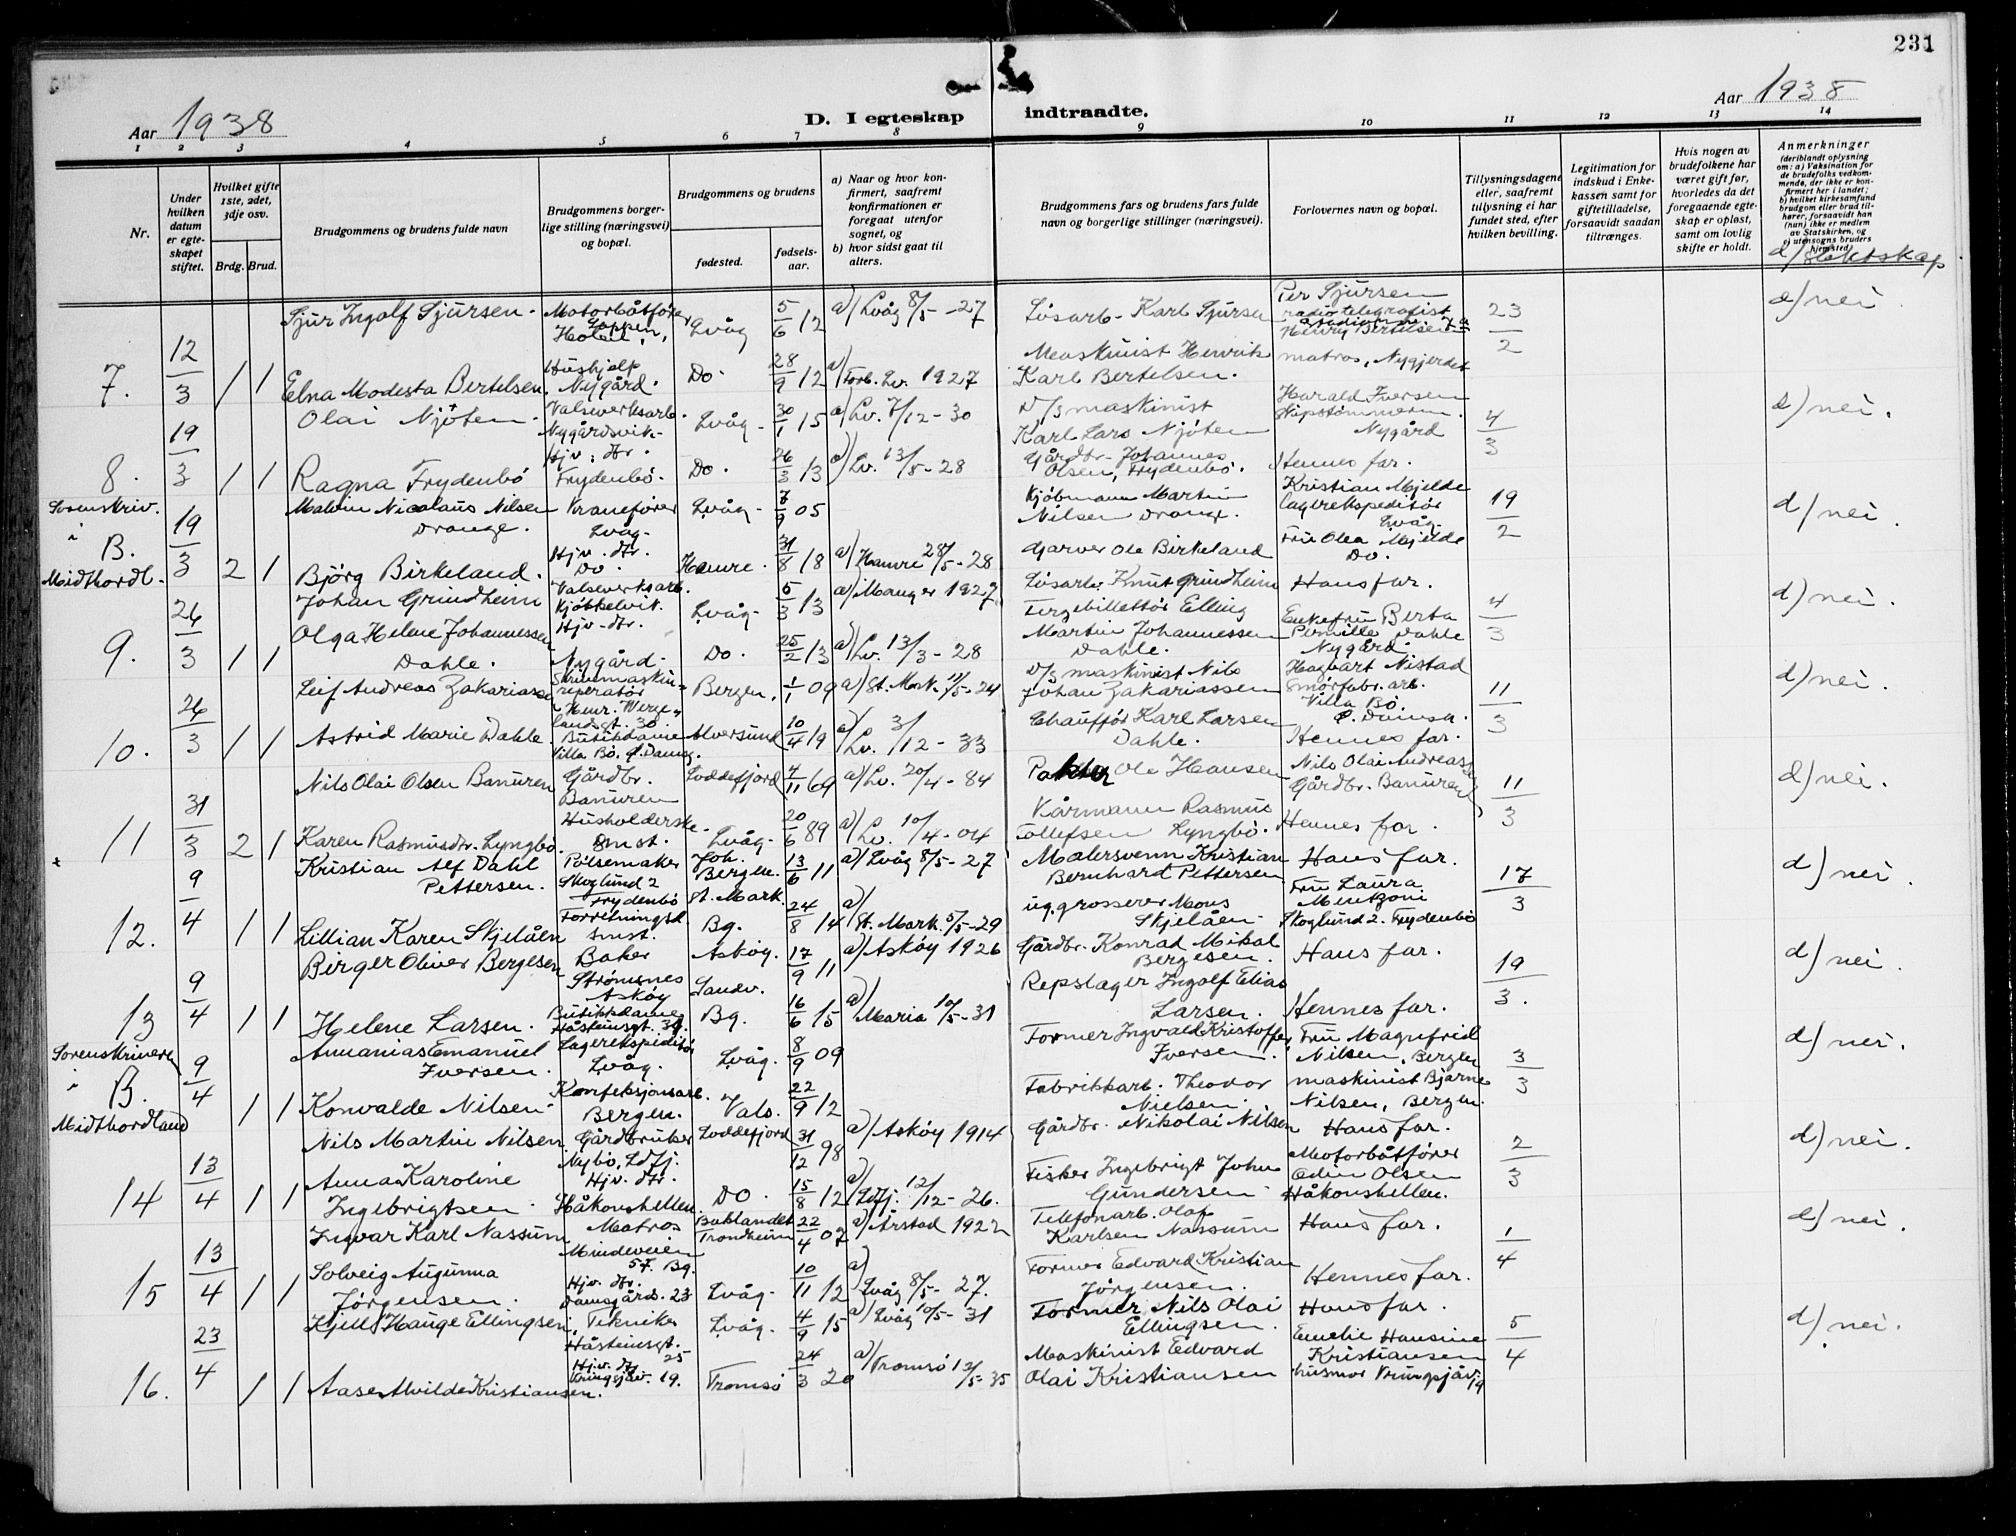 231
Aar 1938
D. I egteskap indtraadte.
Aar 1938
1 2 3 4 5 6 7 8 9 10 11 12 13 14
Nr.
Under hvilken datum er egteskapet stiftet.
Hvilket gifte 1ste, 2det, 3dje osv.
Brdg. Brud.
Brudgommens og brudens fulde navn
Brudgommens borgerlige stilling (næringsvei) og bopæl.
Brudgommens og brudens
fødested.
fødselsaar.
a) Naar og hvor konfirmert, saafremt konfirmationen er foregaat utenfor sognet, og
b) hvor sidst gaat til alters.
Brudgommens fars og brudens fars fulde navn og borgerlige stillinger (næringsvei).
Forlovernes navn og bopæl.
Tillysningsdagene eller, saafremt tillysning ei har fundet sted, efter hvilken bevilling.
Legitimation for indskud i Enkekassen samt for giftetilladelse, forsaavidt saadan tiltrænges.
Hvis nogen av brudefolkene har været gift før, hvorledes da det foregaaende egteskap er opløst, samt om lovlig skifte er holdt.
Anmerkninger
(deriblandt oplysning om: a) Vaksination for de brudefolks vedkommende, der ikke er konfirmert her i landet; b) hvilket kirkesamfund brudgom eller brud tilhører, forsaavidt han (hun) ikke er medlem av Statskirken, og c) utensogns bruders hjemsted)
d) Slektskap
7. 12/3 1 1
Sjur Ingolf Sjursen. Motorbåtfører Lvåg 5/6 12 a) Lvåg 8/5-27 Løsarb. Karl Sjursen Per Sjursen radiotelegrafist 23/2 d) nei
Elna Modesta Bertelsen. Hushjelp Nygård. Do. 28/9 12 a) Forb. Lv. 1927 Maskinist Henrik Karl Bertelsen. Henry Bertelsen matros, Nygjerdet
8. 19/3 1 1
Olai Njøten. Valseverksarb. Nygårdsvik. Lvåg. 30/1 15 a) Lv. 7/12-30 D/s maskinist Karl Lars Njøten Harald Iversen Nygård 4/3 d) nei.
Ragna Frydenbø Hjv. dtr. Frydenbø. Do. 26/3 13 a) Lv. 13/5-28 Gårdbr. Johannes Olsen, Frydenbø. Hennes far.
Sorenskriv. i B. Midthordl. 19/3 2 1
Malvin Nicolaus Nilsen Drange. Kranefører Lvåg. Lvåg. 7/9 05 Kjøbmann Martin Nilsen Drange. Kristian Mjelde lagerekspeditør Lvåg. 19/2 d) nei.
Bjørg Birkeland. Hjv. dtr. Do. Hamre. 31/8 18 a) Hamre 28/5-28 Garver Ole Birkeland Fru Olea Mjelde Do.
9. 26/3 1 1
Johan Grindheim Valseverksarb. Kjøkkelvik. Lvåg. 5/3 13 a) Manger 1927 Løsarb. Knut Grindheim Hans far. 4/3 d) nei.
Olga Helene Johannessen Dahle. Hjv. dtr. Nygård. Do. 25/2 13 a) Lv. 13/3-28 Fergebillettør Elling Martin Johannessen Dahle. Enkefru Berta Pernille Dahle Nygård
10. 26/3 1 1
Leif Andreas Zakariassen Skrivemaskinreperatør Henr. Wergelandsgt. 30. Bergen. 1/1 09 a) St. Mark. 11/5-24 D/s maskinist Nils Johan Zakariassen Hagbart Nistad Smørfabr. arb. Villa Bø. D. Damsg. 11/3 d) nei.
Astrid Marie Dahle. Butikkdame Villa Bø. D. Damsg. Alversund 10/4 19 a) Lv. 3/12-33 Chauffør Karl Larsen Dahle. Hennes far.
11 31/3 2 1
Nils Olai Olsen Banuren Gårdbr. Banuren Loddefjord 4/11 69 a) Lv. 20/4-84 Pakter Ole Hansen Nils Olai Andreassen Gårdbr. Banuren 11/3 d) nei.
Karen Rasmusdtr. Lyngbø. Husholderske smst. Lvåg. 20/6 89 a) Lv. 10/4-04 Kårmann Rasmus Tollefsen Lyngbø. Hennes far.
12. 9/4 1 1
Kristian Alf Dahl Pettersen. Pølsemaker Skoglund 2 Frydenbø Joh. Bergen. 13/6 11 a) Lvåg 8/5-27 Malersvenn Kristian Bernhard Pettersen Hans far. 17/3 d) nei.
Lillian Karen Skjelåen Forretningsd. smst. St. Mark. Bg. 24/8 14 a) St. Mark. 5/5-29 ug. grosserer Mons Skjelåen. Fru Laura Mentzoni Skoglund 2. Frydenbø
13 9/4 1 1
Birger Oliver Bergesen Baker Strømsnes Askøy Askøy. 17/9 11 a) Askøy 1926 Gårdbr. Konrad Mikal Bergesen. Hans far. 19/3. d) nei.
Helene Larsen. Butikkdame Håsteinsgt. 39. Sandv. Bg. 16/6 15 a) Maria 10/5-31 Repslager Ingolf Elias Larsen. Hennes far.
Sorenskriveren i B. Midthordland 9/4 1 1
Annanias Emanuel Iversen. Lagerekspeditør Lvåg. Lvåg. 8/9 09 Former Ingvald Kristoffer Iversen. Fru Magnfrid Nilsen, Bergen 3/3 d) nei.
Konvalde Nilsen. Konfeksjonsarb. Bergen. Vals. 22/9 12 Fabrikkarb. Theodor Nielsen. maskinist Bjarne Nilsen, Bergen.
14 13/4 1 1
Nils Martin Nilsen Gårdbruker Nybø, Ldfj. Loddefjord 31/12 98 a) Askøy 1914 Gårdbr. Nikolai Nilsen Hans far. 2/3 d) nei.
Anna Karoline Ingebrigtsen. Hjv. dtr. Håkonshellen. Do. 15/8 12 a) Ldfj. 12/12-26. Fisker Ingebrigt Johan Gundersen Motorbåtfører Odin Olsen Håkonshellen.
15 13/4 1 1
Ingvar Karl Nassum Matros Mindeveien 57. Bg. Baklandet Trondheim 22/4 07 a) Årstad 1922 Telefonarb. Olaf Karlsen Nassum Hans far. 1/4 d) nei.
Solveig Augunna Jørgensen. Hjv. dtr. Damsgårds. 23 Lvåg. 10/11 12 a) Lvåg 8/5-27. Former Edvard Kristian Jørgensen. Hennes far.
16. 23/4 1 1
Kjell Hauge Ellingsen. Tekniker Håsteinsgt. 25 Lvåg. 4/9 15 a) Lvåg 10/5-31 Former Nils Olai Ellingsen. Hans far. 5/4 d) nei.
Aase Alvilde Kristiansen. Hjv. dtr. Tromsø 24/3 20 a) Tromsø 12/5-35 Maskinist Edvard Olai Kristiansen Emelie Hansine Kristiansen husmor